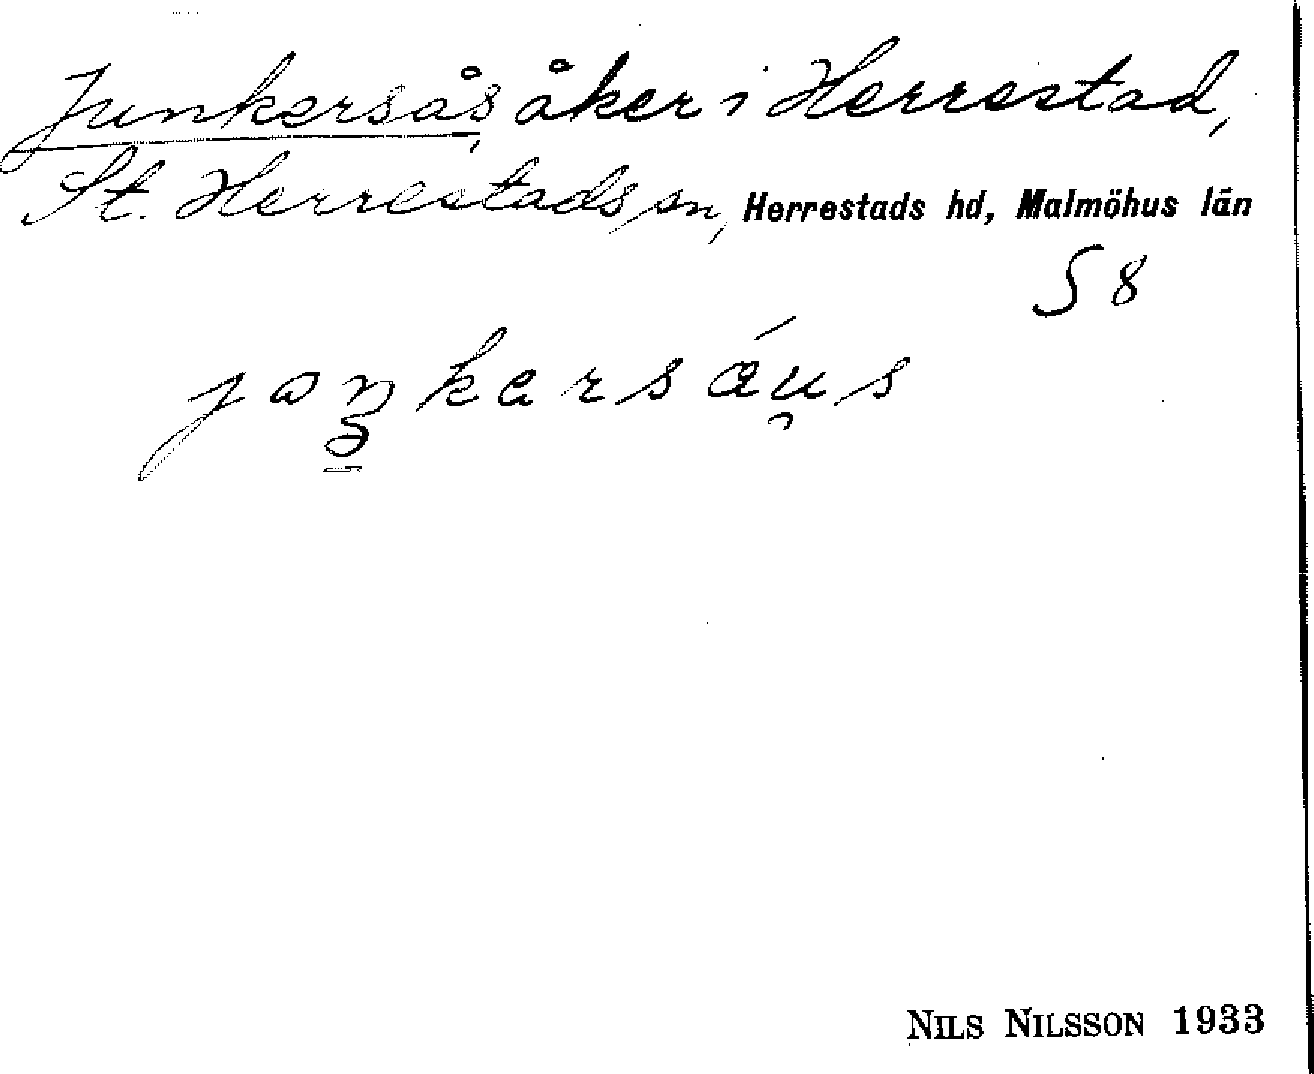 Junkersås, åker i Herrestad,
St. Herrestads sn, Herrestads hd, Malmöhus län
S 8
NILS NILSSON 1933